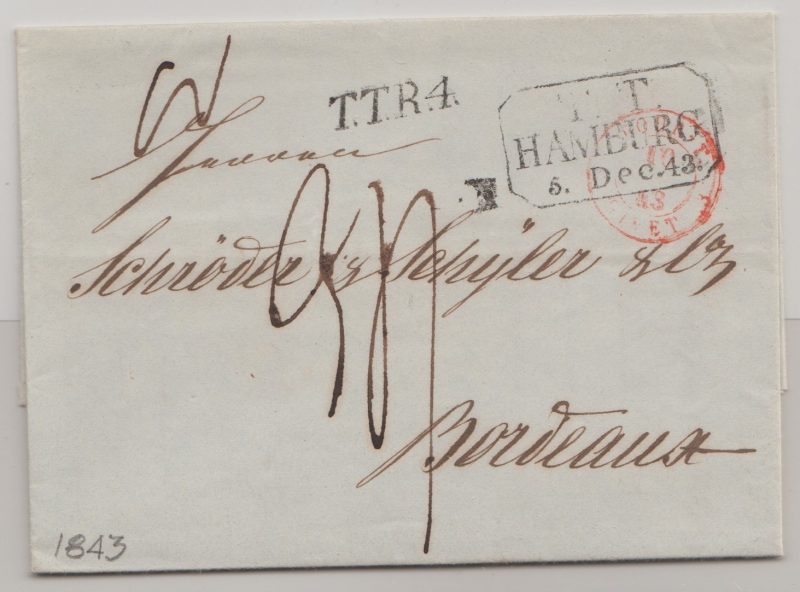 T.T.R.4.
T. T.
HAMBURG
5. Dec. 43.
43
Herren
Schröder & Schÿler & Co
Bordeaux
1843